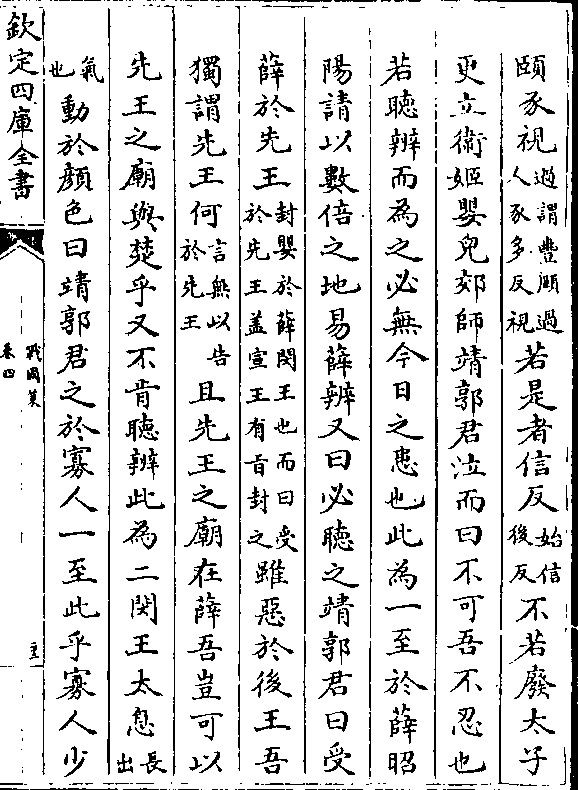 頤豕視過謂豐頤過人豕多反視若是者信反始信後反不若廢太子
更立衛姬嬰兒郊師靖郭君泣而曰不可吾不忍也
若聴辨而為之必無今日之患也此為一至於薛昭
陽請以數倍之地易薛辨又曰必聴之靖郭君曰受
薛於先王封嬰於薛閔王也而曰受於先王盖宣王有㫖封之雖惡於後王吾
獨謂先王何言無以告於先王且先王之廟在薛吾豈可以
先王之廟與楚乎又不肯聴辨此為二閔王太息長出
氣也動於顔色曰靖郭君之於寡人一至此乎寡人少
欽定四庫全書
戰國策
卷四